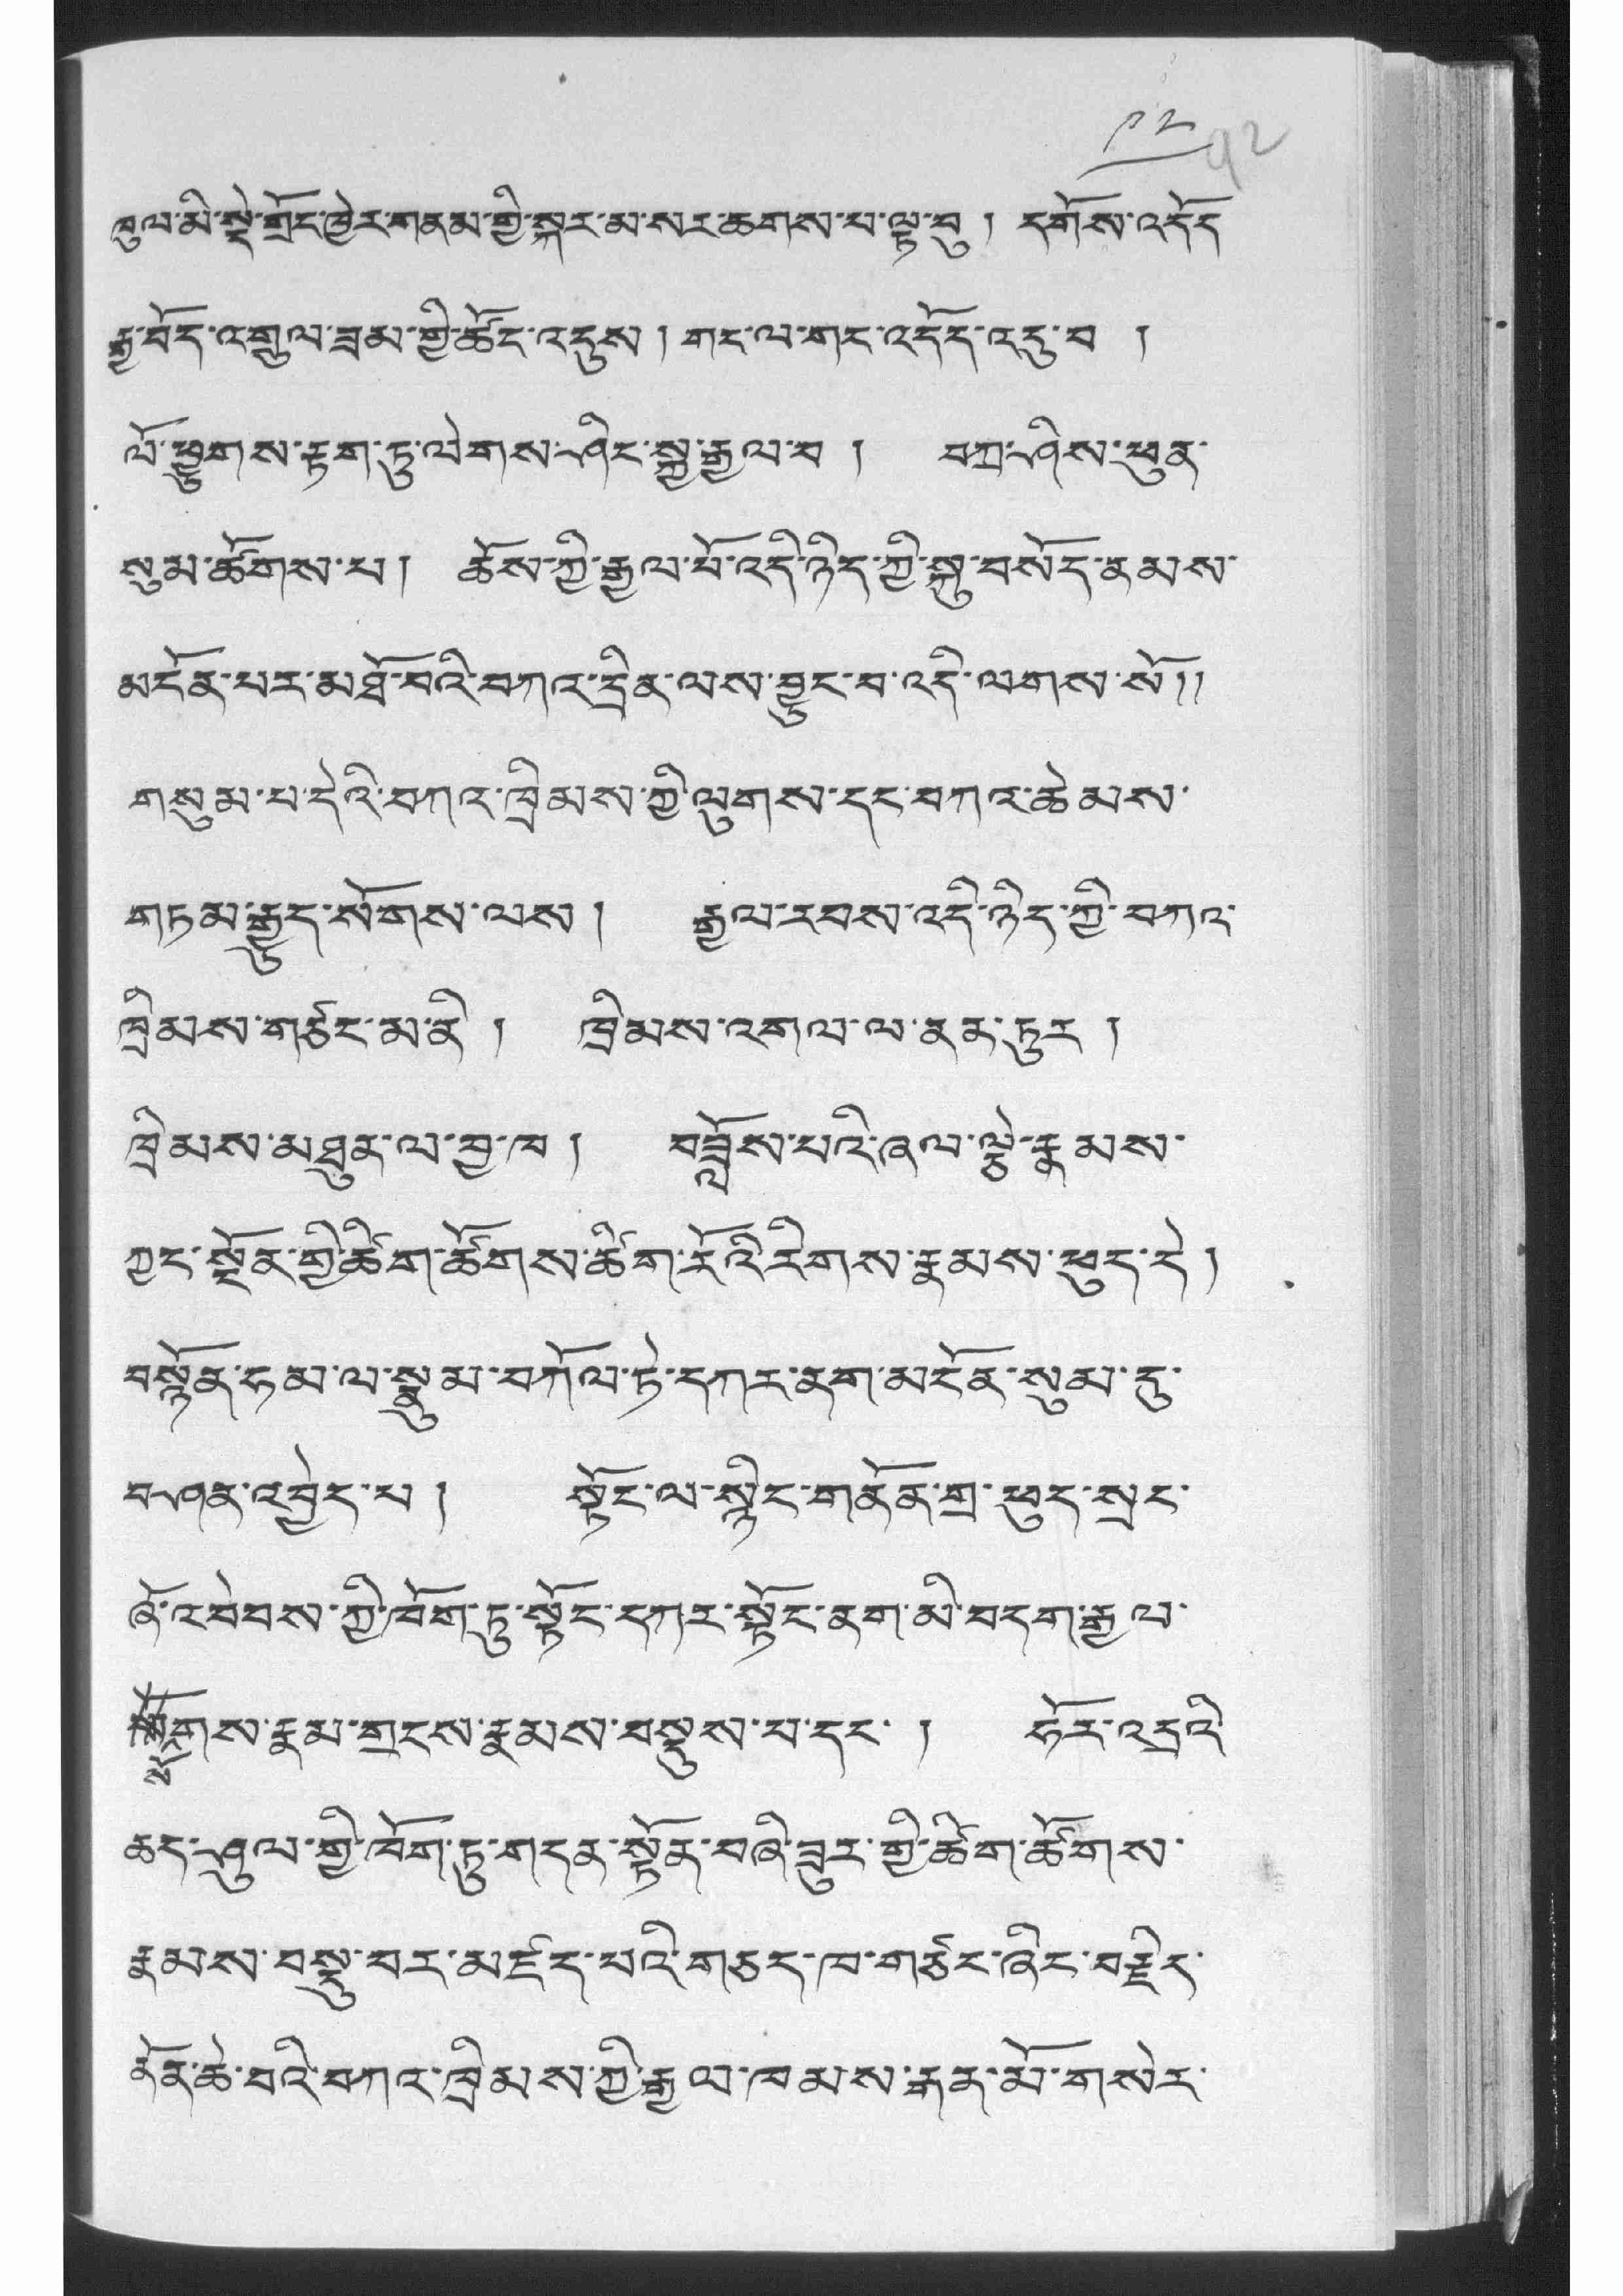 ༡༢ 92
ཁུལ་མི་སྡེ་གྲོང་ཁྱེར་གནམ་གྱི་སྐར་མ་སར་ཆགས་པ་ལྟ་བུ། དགོས་འདོད
རྒྱ་བོད་འགྲུལ་ཟམ་གྱི་ཚོང་འདུས། གང་ལ་གང་འདོད་འདུ་བ །
ལོ་ཕྱུགས་རྟག་ཏུ་ལེགས་ཤིང་སྐྱ་རྒྱལ་བ། བཀྲ་ཤིས་ཕུན་
སུམ་ཚོགས་པ། ཆོས་ཀྱི་རྒྱལ་པོ་འདི་ཉིད་ཀྱི་སྐུ་བསོད་ནམས་
མངོན་པར་མཐོ་བའི་བཀའ་དྲིན་ལས་བྱུང་བ་འདི་ལགས་སོ།།
གསུམ་པ་དེའི་བཀའ་ཁྲིམས་ཀྱི་ལུགས་དང་བཀའ་ཆེམས་
གཏམ་རྒྱུད་སོགས་ལས། རྒྱལ་རབས་འདི་ཉིད་ཀྱི་བཀའ་
ཁྲིམས་གཙང་མ་ནི། ཁྲིམས་འགལ་ལ་ནན་ཏུར།
ཁྲིམས་མཐུན་ལ་བྱ་ཁ། བཟློས་པའི་ཞལ་ལྕེ་རྣམས་
ཀྱང་སྔོན་གྱི་ཚིག་ཚོགས་ཚིག་རོའི་རིགས་རྣམས་ཕུད་དེ།
བསྟོན་ཧམ་ལ་སྣུམ་བཀོལ་ཏེ་དཀར་ནག་མངོན་སུམ་དུ་
བཤན་འབྱེད་པ། སྟོང་ལ་སྙིང་གནོན་གྲ་ཕུད་སྲང་
ཞོ་འབེབས་ཀྱི་ཁོག་ཏུ་སྟོང་དཀར་སྟོང་ནག་མི་བདག་རྒྱལ་
སོགས་རྣམ་གྲངས་རྣམས་བསྡུས་པ་དང་། ཧོར་འདྲའི
ཆད་ཤུལ་གྱི་ཁོག་ཏུ་གདན་སྟོན་བཞི་ཟུར་གྱི་ཚིག་ཚོགས་
རྣམས་བསྡུ་བར་མཛད་པའི་གཅད་ཁ་གཙང་ཞིང་བརྗིད་
ནོན་ཆེ་བའི་བཀའ་ཁྲིམས་ཀྱི་རྒྱལ་ཁམས་རྒན་མོ་གསེར་